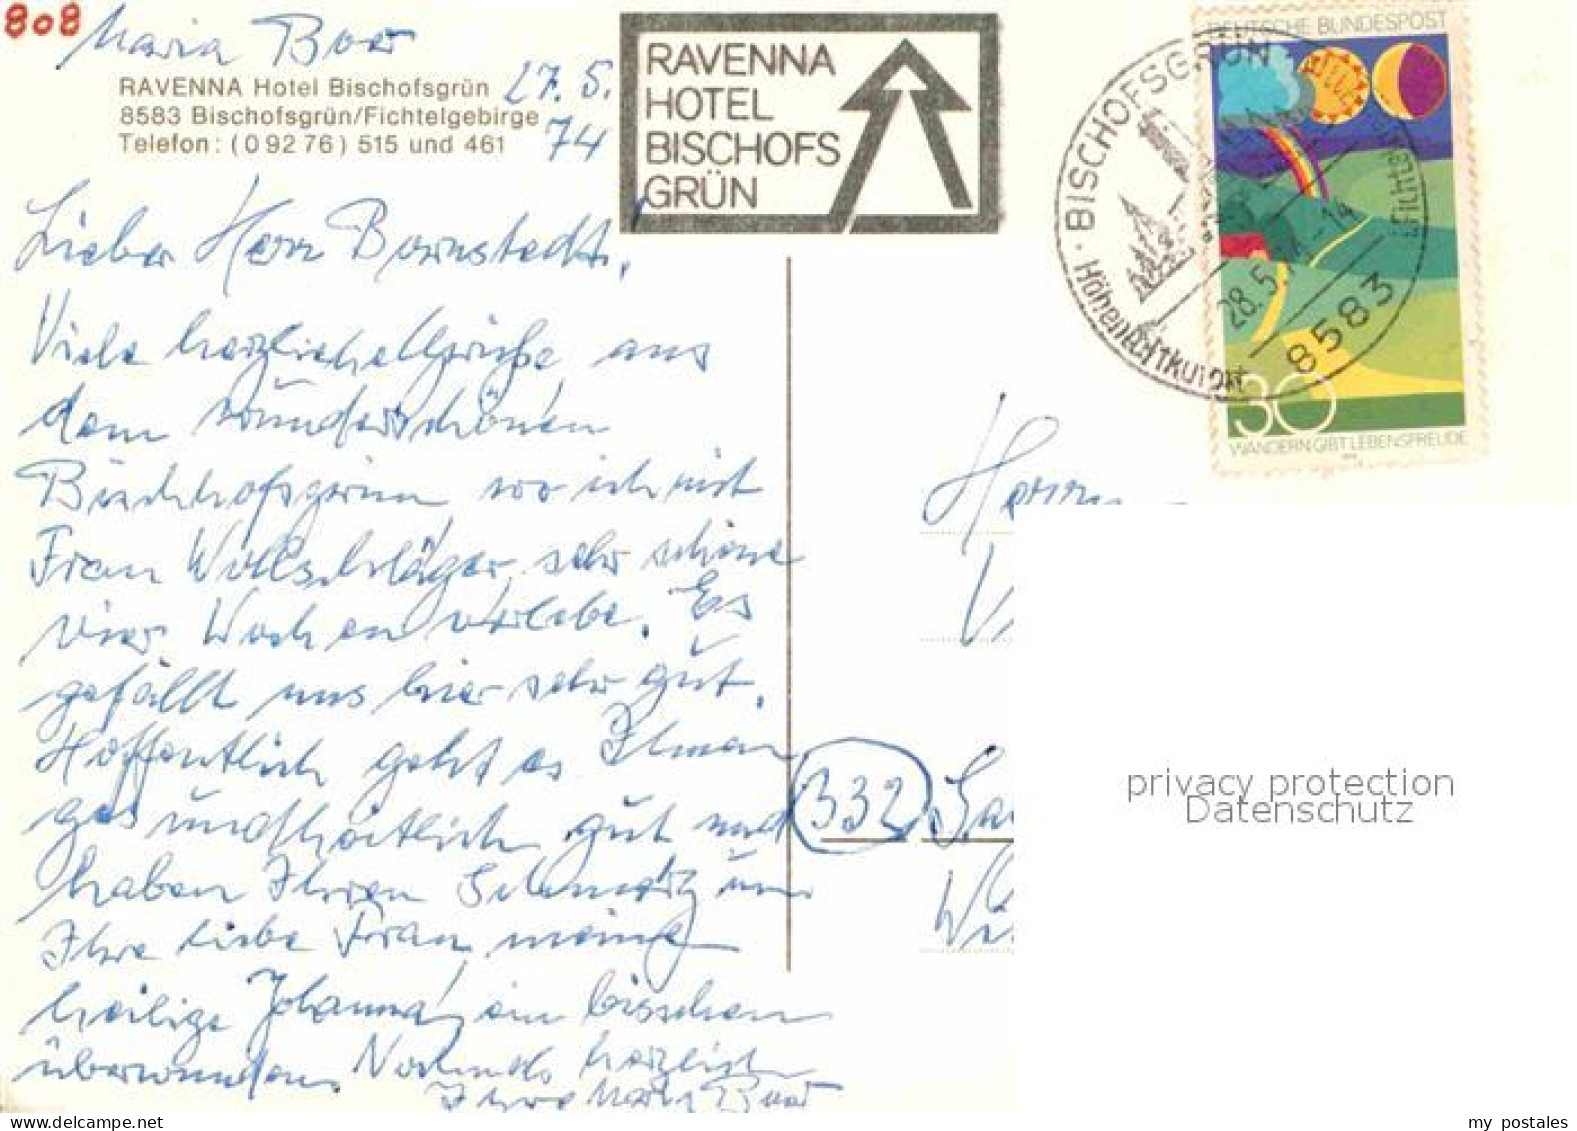 808
Maria Boer
RAVENNA Hotel Bischofsgrün
8583 Bischofsgrün/Fichtelgebirge
Telefon: (0 92 76) 515 und 461
27. 5.
74
RAVENNA
HOTEL
BISCHOFS
GRÜN
DEUTSCHE BUNDESPOST
BISCHOFSGRÜN
28.5.74-14
8583
Höhenluftkurort
30
WANDERN GIBT LEBENSFREUDE
Lieber Herr Bornstedt,
Viele herzliche Grüße aus
dem wunderschönen
Bischhofsgrün wo ich mit
Frau Wollschläger sehr schöne
vier Wochen verlebe. Es
gefällt uns hier sehr gut.
Hoffentlich geht es Ihnen
gesundheitlich gut und
haben Ihren Schmerz um
Ihre liebe Frau, meine
heilige Johanna, ein bisschen
überwunden. Nochmals herzlich
Ihre Maria Boer
Herrn
332
privacy protection
Datenschutz
my postales